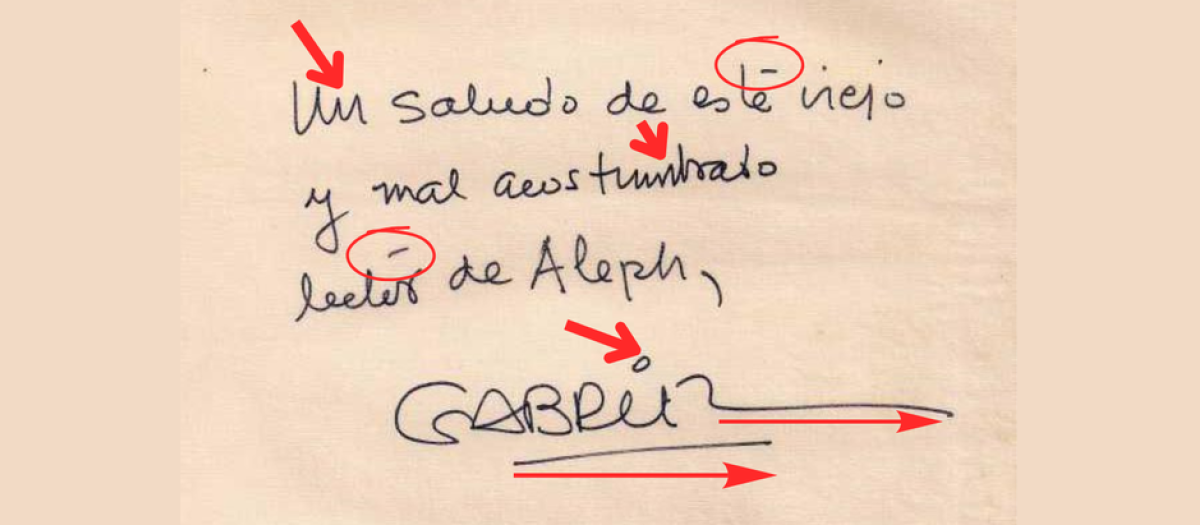 Un saludo de este viejo
y mal acostumbrado
lector de Aleph,
GABRIEL